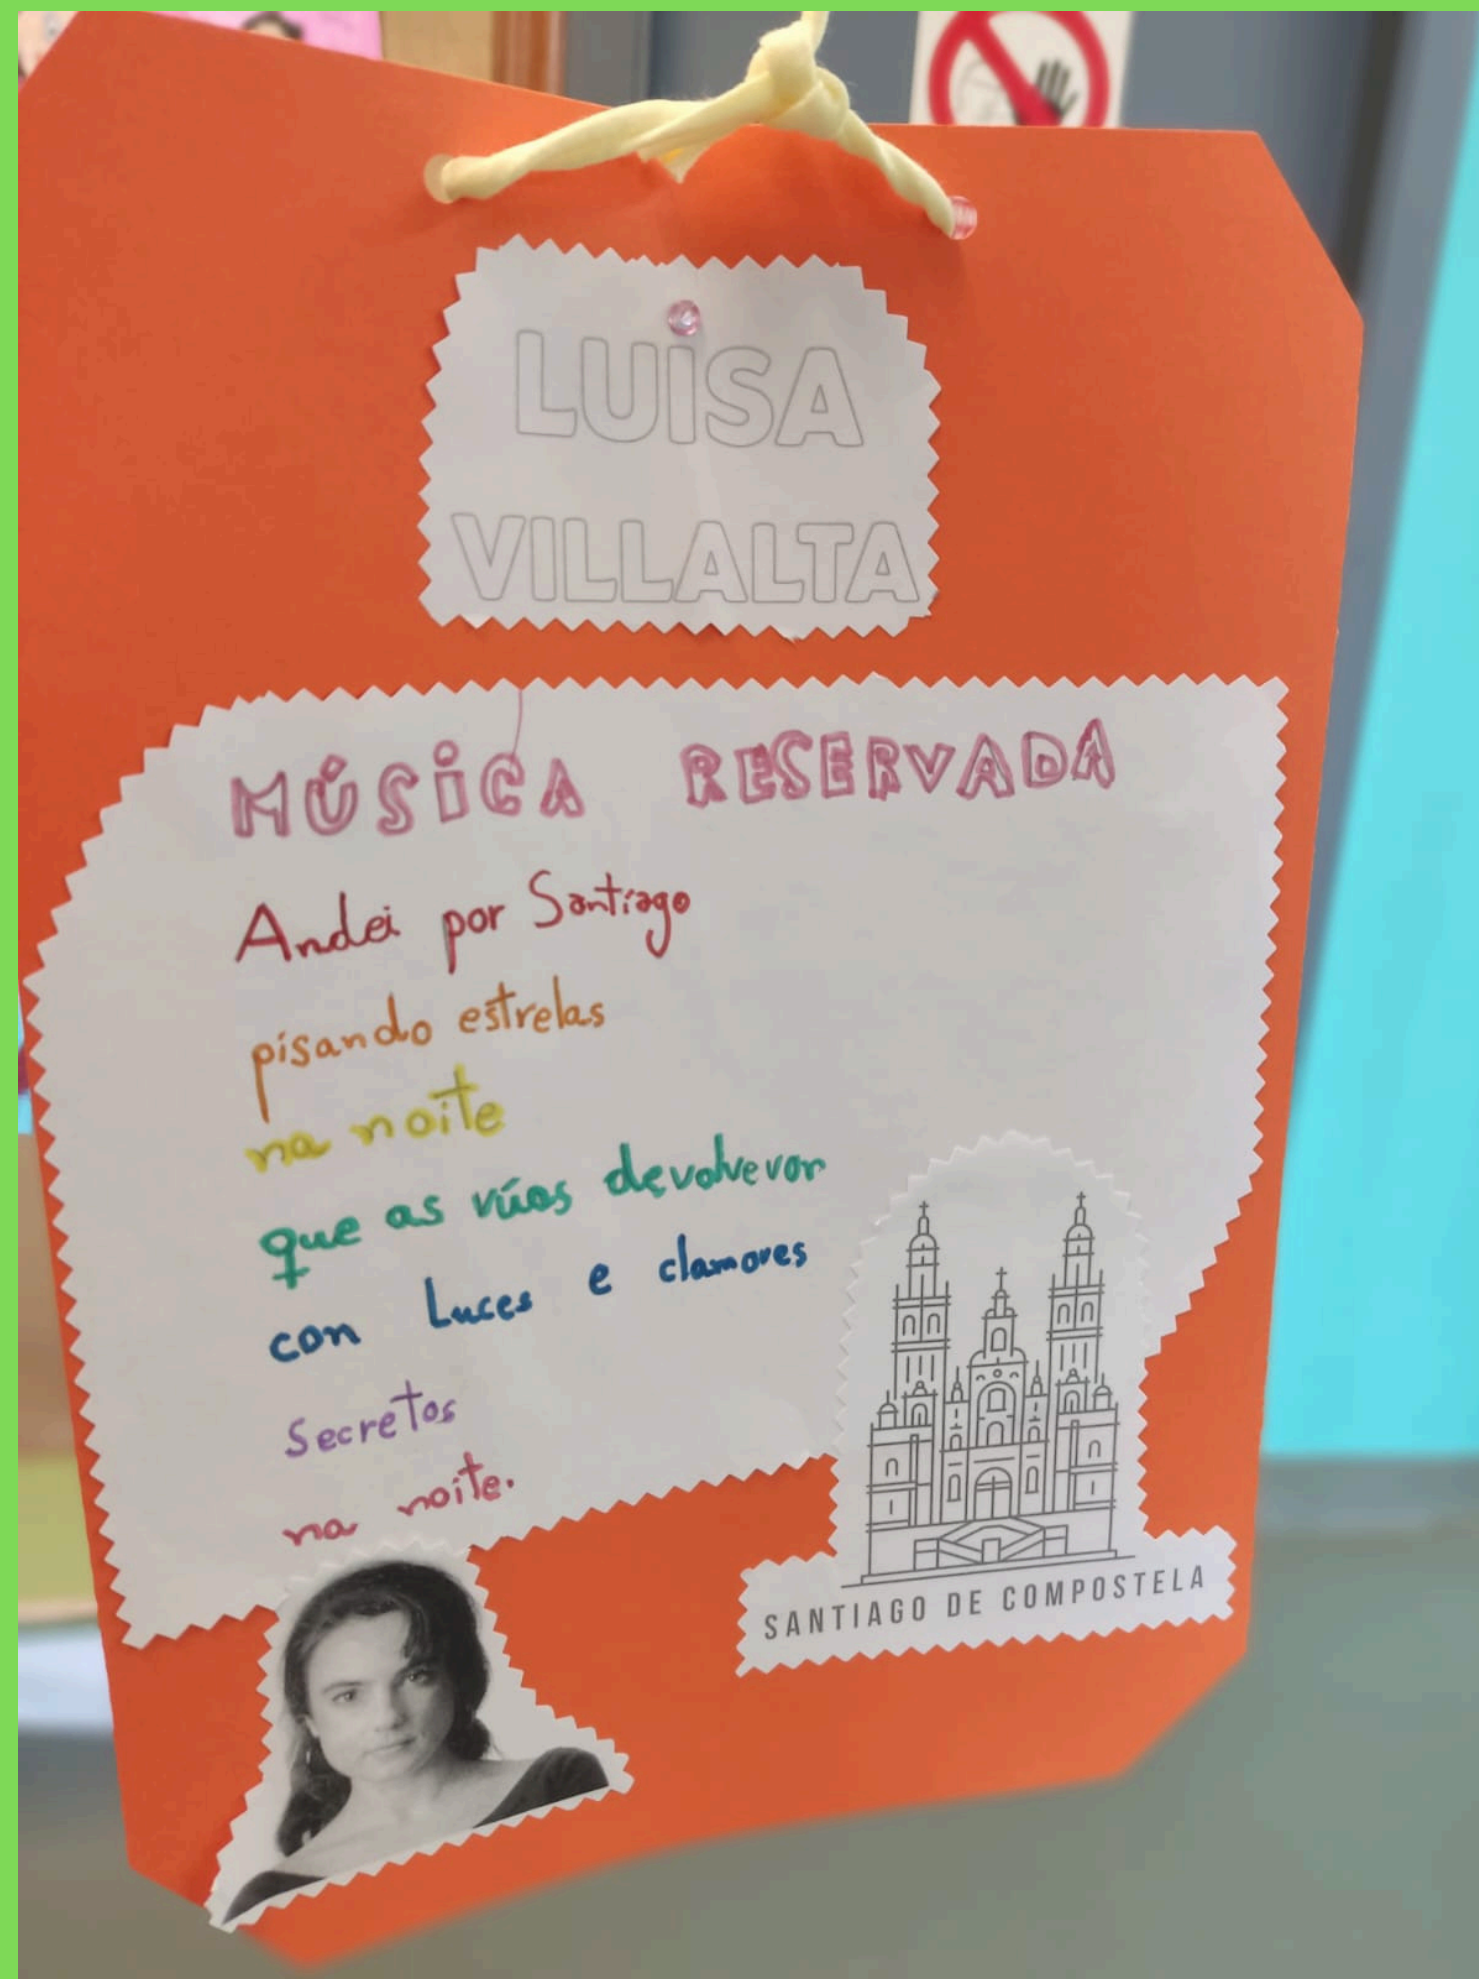 LUISA
VILLALTA
MÚSICA RESERVADA
Andei por Santiago
pisando estrelas
na noite
que as rúas devolver
con Luces e clamores
Secretos
na noite.
SANTIAGO DE COMPOSTELA